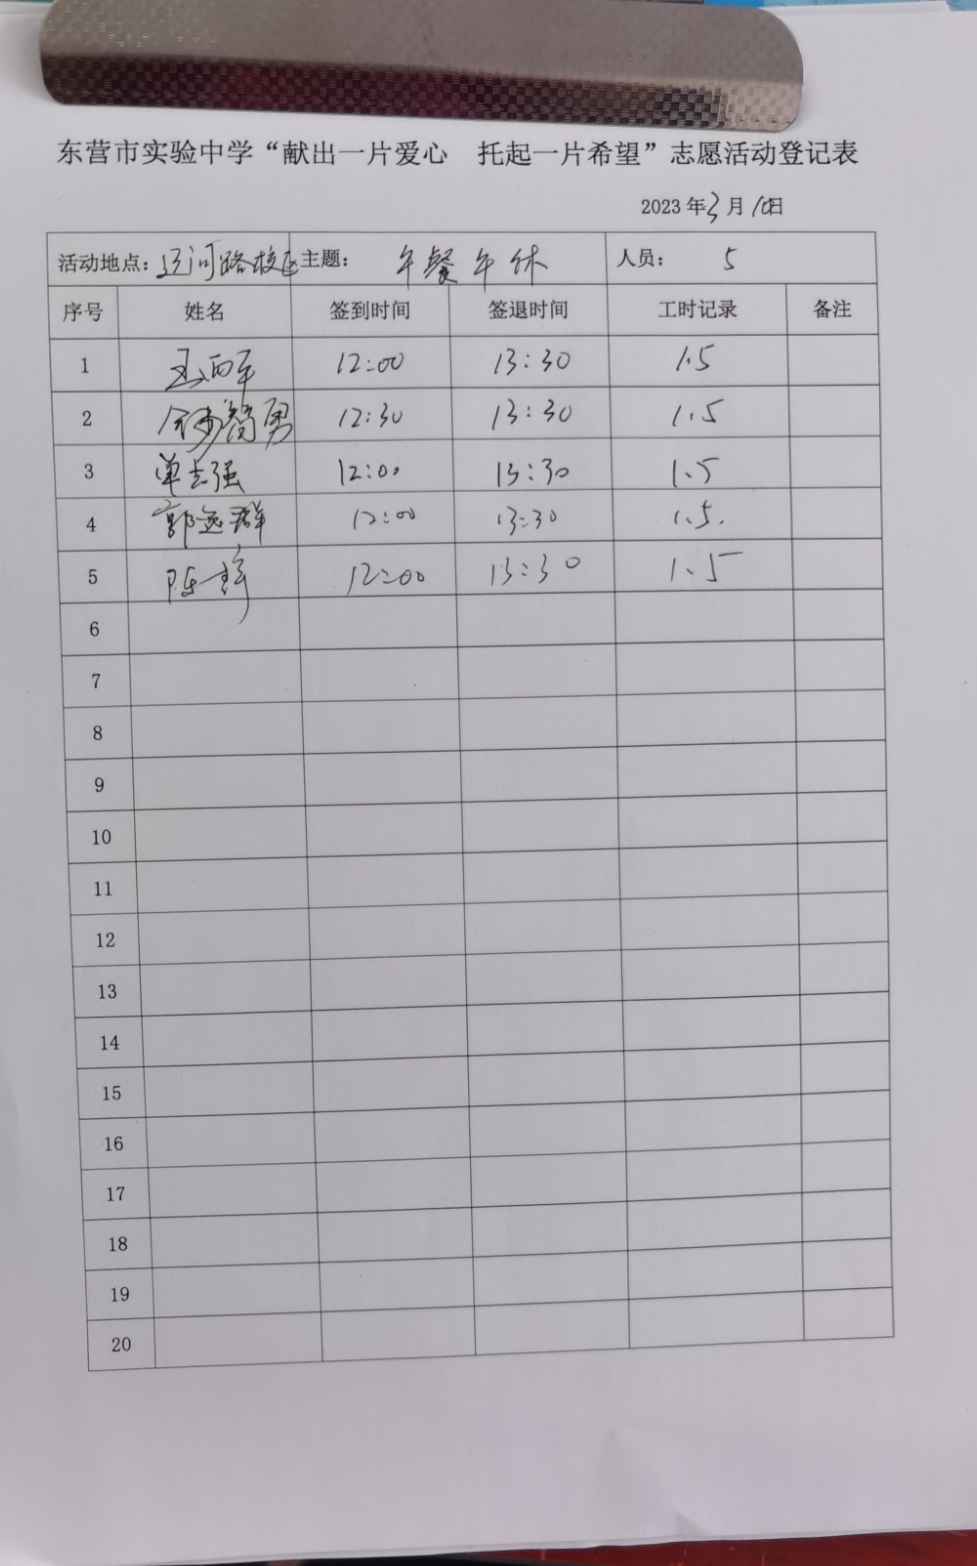 东营市实验中学“献出一片爱心 托起一片希望”志愿活动登记表
2023年3月10日
活动地点：运河路校区 主题： 午餐午休 人员： 5
序号 姓名 签到时间 签退时间 工时记录 备注
1 12:00 13:30 1.5
2 12:30 13:30 1.5
3 单志强 12:00 13:30 1.5
4 郭逸群 12:00 13:30 1.5.
5 陈 12:00 13:30 1.5
6
7
8
9
10
11
12
13
14
15
16
17
18
19
20